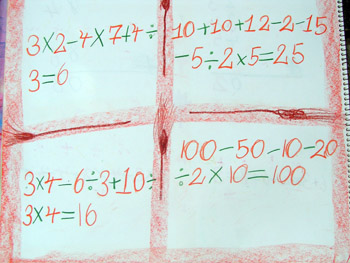 3×2-4×7+4÷
3=6
10+10+12-2-15
-5÷2×5=25
3×4-6÷3+10÷
3×4=16
100-50-10-20
÷2×10=100